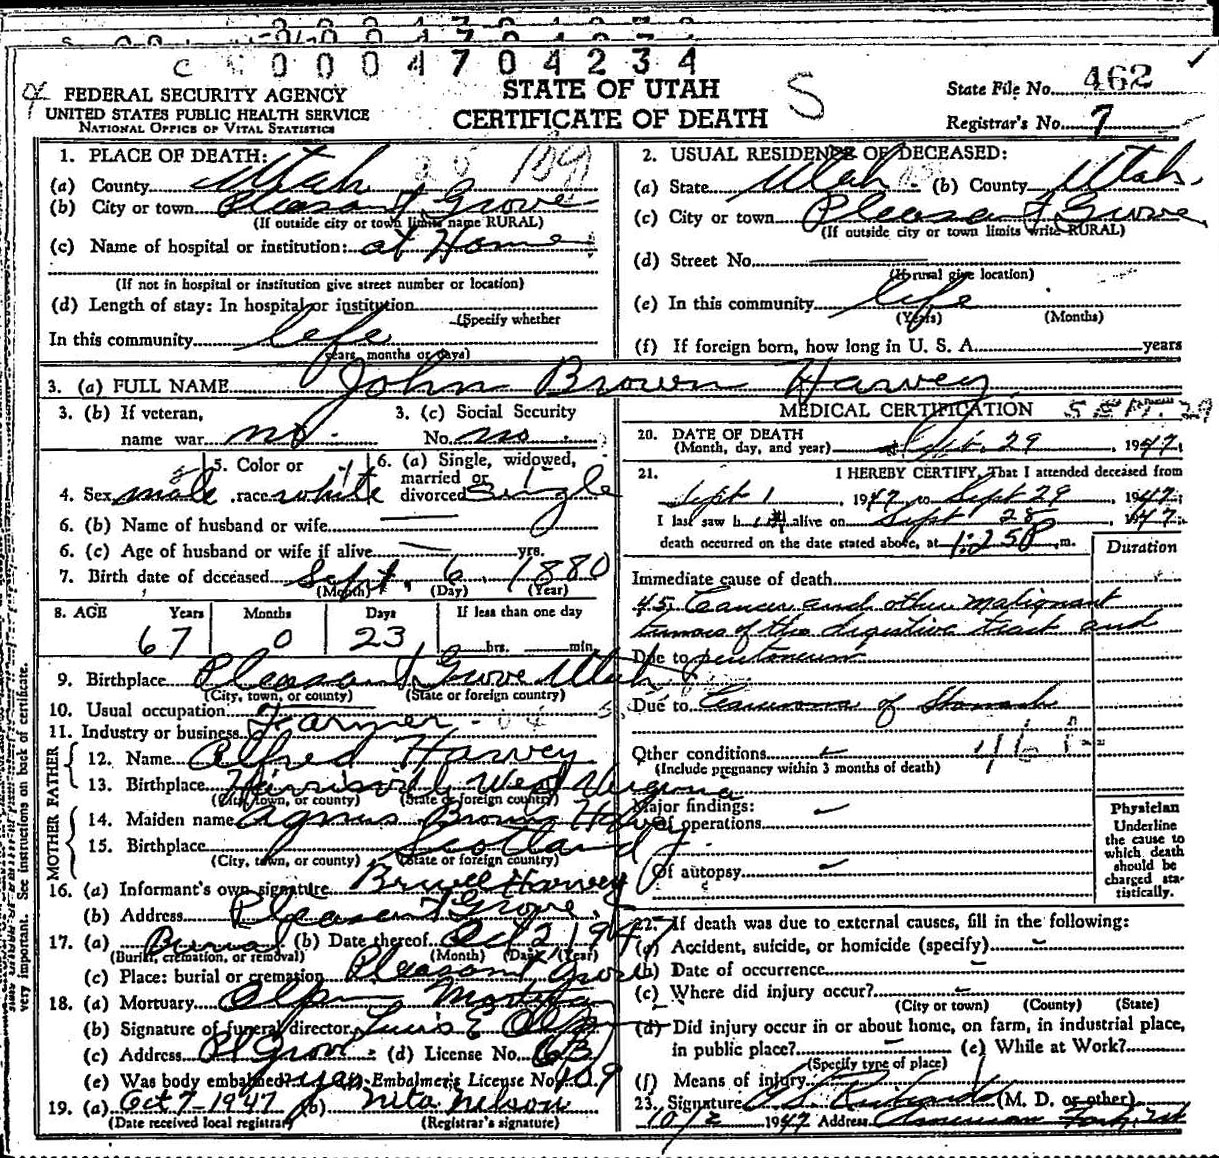 0004704234
STATE OF UTAH
CERTIFICATE OF DEATH
S
FEDERAL SECURITY AGENCY
UNITED STATES PUBLIC HEALTH SERVICE
NATIONAL OFFICE OF VITAL STATISTICS
State File No. 462
Registrar's No. 7
1. PLACE OF DEATH:
(a) County Utah
(b) City or town Pleasant Grove
(If outside city or town limits name RURAL)
(c) Name of hospital or institution: at Home
(If not in hospital or institution give street number or location)
(d) Length of stay: In hospital or institution
(Specify whether
In this community life
years, months or days)
2. USUAL RESIDENCE OF DECEASED:
(a) State Utah (b) County Utah.
(c) City or town Pleasant Grove
(If outside city or town limits write RURAL)
(d) Street No.
(If rural give location)
(e) In this community life
(Years) (Months)
(f) If foreign born, how long in U. S. A. years
3. (a) FULL NAME John Brown Harvey
3. (b) If veteran,
name war no.
3. (c) Social Security
No. no.
4. Sex male
5. Color or
race white
6. (a) Single, widowed,
married or
divorced Single
6. (b) Name of husband or wife
6. (c) Age of husband or wife if alive yrs.
7. Birth date of deceased Sept. 6 1880
(Month) (Day) (Year)
8. AGE Years Months Days If less than one day
67 0 23 hrs. min.
9. Birthplace Pleasant Grove Utah
(City, town, or county) (State or foreign country)
10. Usual occupation Farmer
11. Industry or business
FATHER
12. Name Alfred Harvey
13. Birthplace West Virginia
(City, town, or county) (State or foreign country)
MOTHER
14. Maiden name
15. Birthplace Scotland
(City, town, or county) (State or foreign country)
16. (a) Informant's own signature Harvey
(b) Address Pleasant Grove.
17. (a) Burial (b) Date thereof Oct 2 1947
(Burial, cremation, or removal) (Month) (Day) (Year)
(c) Place: burial or cremation Pleasant Grove
18. (a) Mortuary
(b) Signature of funeral director
(c) Address Pl Grove (d) License No. 63
(e) Was body embalmed? yes Embalmer's License No. 109
19. (a) Oct 7-1947 (b) Nita Nelson
(Date received local registrar) (Registrar's signature)
MEDICAL CERTIFICATION SEPT. 29
20. DATE OF DEATH
(Month, day, and year) Sept. 29 1947
21. I HEREBY CERTIFY, That I attended deceased from
Sept 1, 1947 to Sept 29, 1947;
I last saw him alive on Sept 28, 1947;
death occurred on the date stated above, at 1:25 P. m.
Duration
Immediate cause of death
45. Cancer and other malignant
tumors of the digestive tract and
Due to peritoneum
Due to Carcinoma of Stomach
Other conditions
(Include pregnancy within 3 months of death)
Major findings:
Of operations
Of autopsy
Physician
Underline
the cause to
which death
should be
charged sta-
tistically.
22. If death was due to external causes, fill in the following:
(a) Accident, suicide, or homicide (specify)
(b) Date of occurrence
(c) Where did injury occur?
(City or town) (County) (State)
(d) Did injury occur in or about home, on farm, in industrial place,
in public place? (e) While at Work?
(Specify type of place)
(f) Means of injury
23. Signature (M. D. or other)
10/2 1947 Address American Fork, Ut
very important. See instructions on back of certificate.